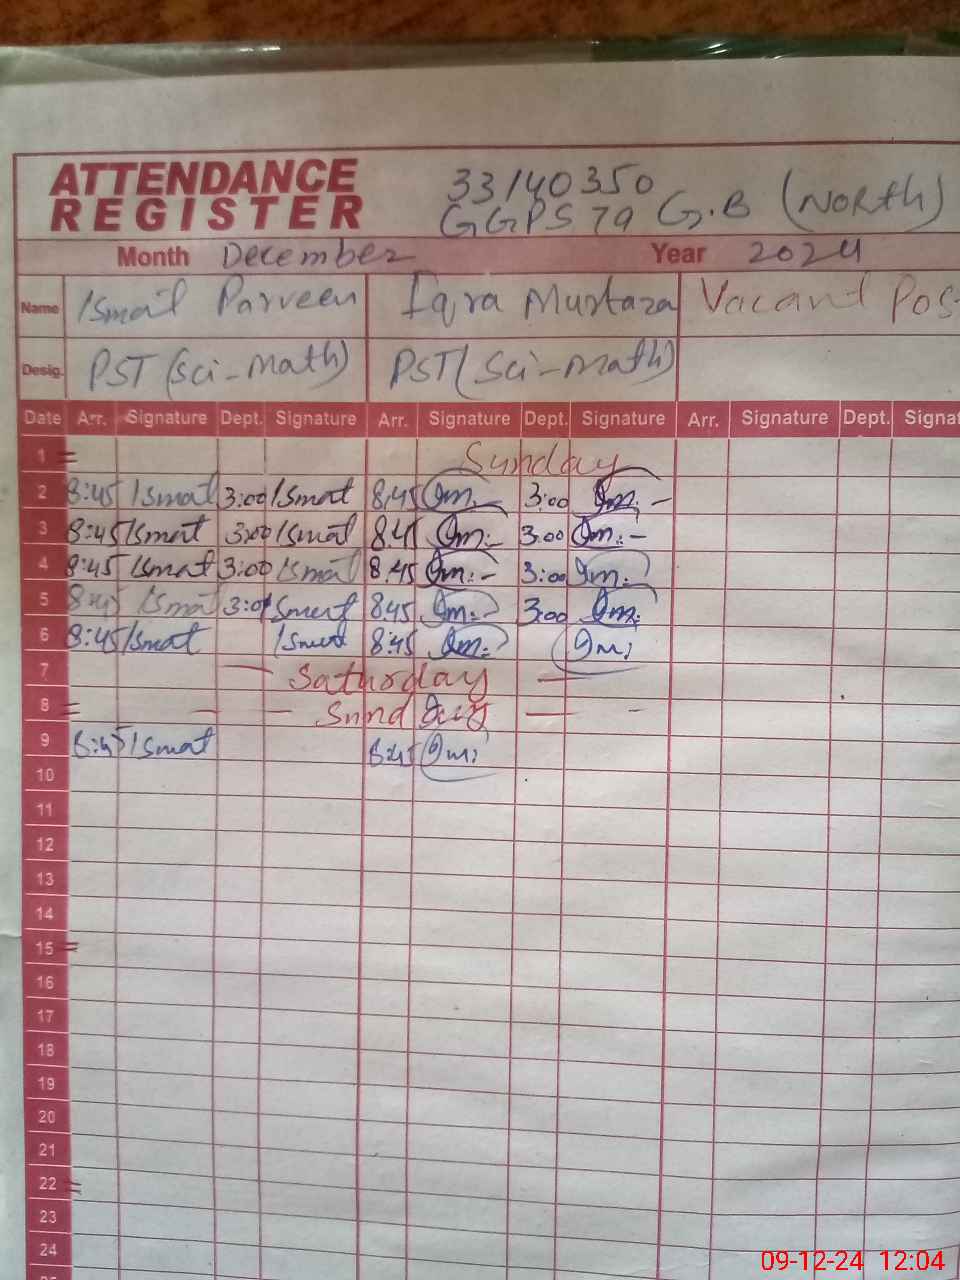 ATTENDANCE REGISTER
33140350
GGPS 79 G.B (North)
Month December Year 2024
Name Ismat Parveen Iqra Murtaza Vacant Pos
Desig. PST (Sci-Math) PST (Sci-math)
Date Arr. Signature Dept. Signature Arr. Signature Dept. Signature Arr. Signature Dept. Signat
1 = Sunday
2 8:45 Ismat 3:00 Ismat 8:45 3:00
3 8:45 Ismat 3:00 Ismat 8:45 3:00
4 8:45 Ismat 3:00 Ismat 8:45 3:00
5 8:45 Ismat 3:0 Ismat 8:45 3:00
6 8:45 Ismat Ismat 8:45
7 — Saturday —
8 = — — Sunday — -
9 8:45 Ismat 8:45
10
11
12
13
14
15 =
16
17
18
19
20
21
22 =
23
24
09-12-24 12:04